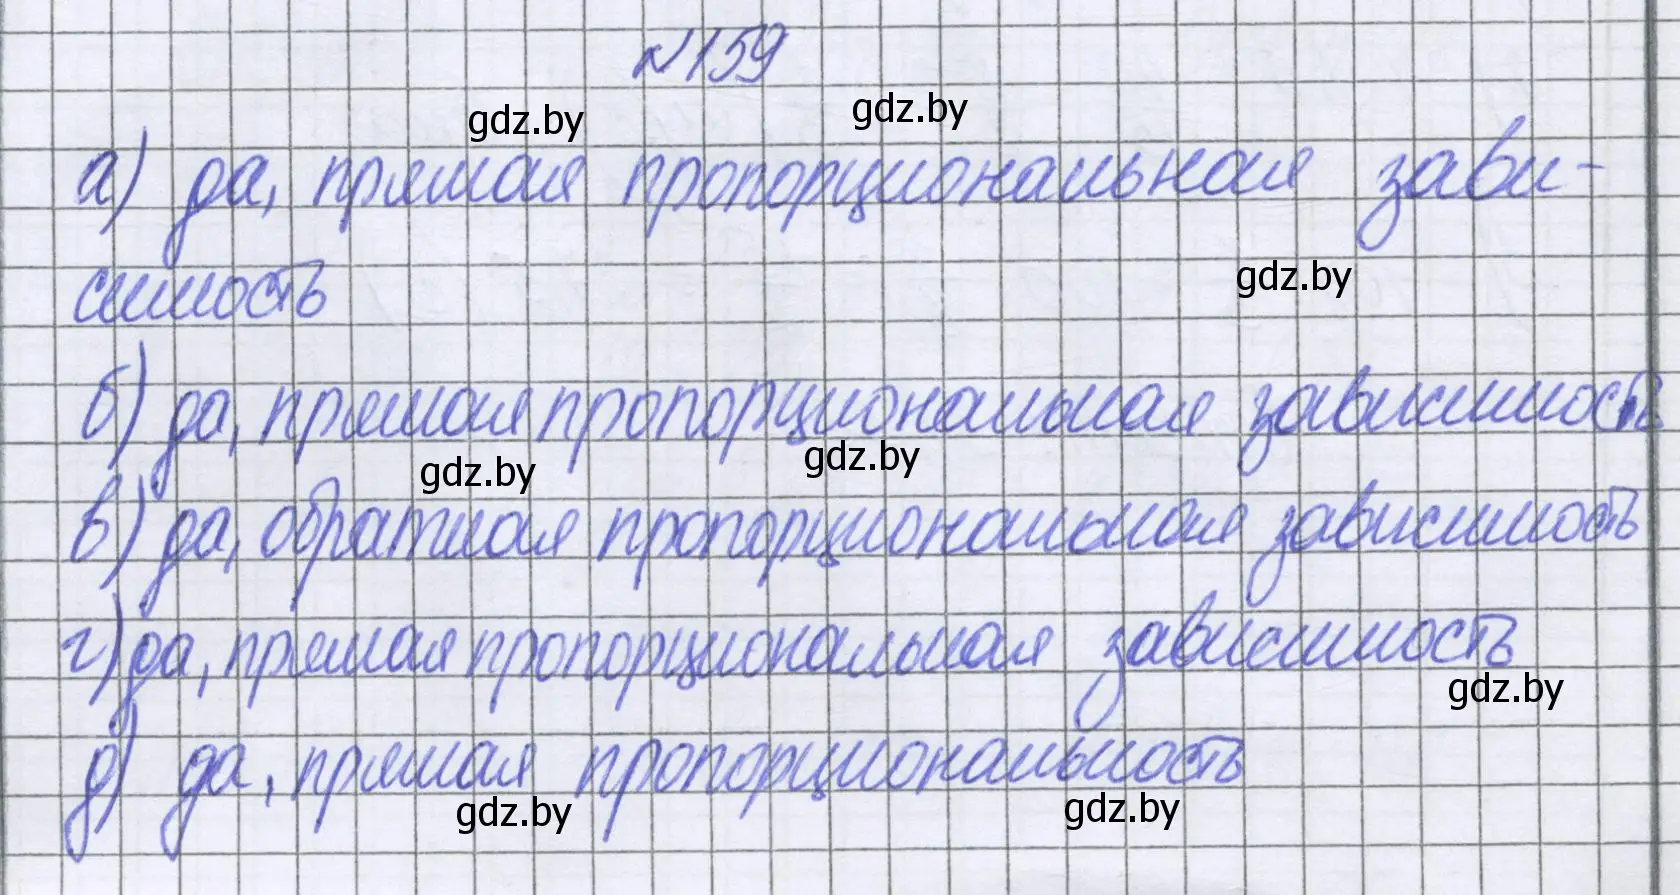 №159
gdz.by gdz.by
а) да, прямая пропорциональная зави-
gdz.by
симость
б) да, прямая пропорциональная зависимость
gdz.by gdz.by
в) да, обратная пропорциональная зависимость
г) да, прямая пропорциональная зависимость
gdz.by
д) да, прямая пропорциональность
gdz.by gdz.by